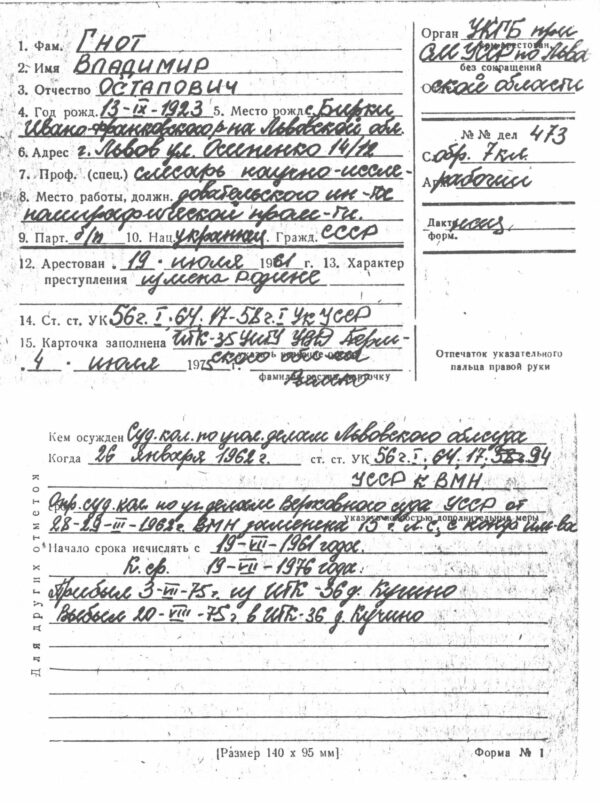 1. Фам. ГНОТ
2. Имя ВЛАДИМИР
3. Отчество ОСТАПОВИЧ
4. Год рожд. 13-IX-1923 5. Место рожд. с. Бирки
Ивано-Франковского р-на Львовской обл.
6. Адрес г. Львов ул. Осипенко 14/12
7. Проф. (спец.) слесарь научно-иссле-
8. Место работы, должн. довательского ин-та
полиграфической пром-ти.
9. Парт. б/п 10. Нац. украинец Гражд. СССР
12. Арестован 19 июля 1961 г. 13. Характер
преступления измена Родине
14. Ст. ст. УК 56 ч. I, 64, 17-58 ч. I УК УССР
15. Карточка заполнена ИТК-35 УИТУ УВД Перм-
ского
4 июля 1975 г.
фамилия карточку
Орган УКГБ при
СМ УССР по Льво
без сокращений
ской области
№№ дел 473
обр. 7 кл.
рабочий
Дакт.
форм.
Отпечаток указательного
пальца правой руки
Для других отметок
Кем осужден Суд. кол. по угол. делам Львовского облсуда
Когда 26 января 1962 г. ст. ст. УК 56 ч. I, 64, 17, 58 ч. 94
УССР к ВМН
Опр. суд. кол. по уг. делам Верховного суда УССР от
28-29-III-1962 г. ВМН заменена 15 г. л.с., с конф. им-ва
Начало срока исчислять с 19-VII-1961 года.
К. ср. 19-VII-1976 года.
Прибыл 3-VII-75 г. из ИТК-36 д. Кучино
Выбыл 20-VIII-75 г. в ИТК-36 д. Кучино
[Размер 140 x 95 мм]
Форма № 1